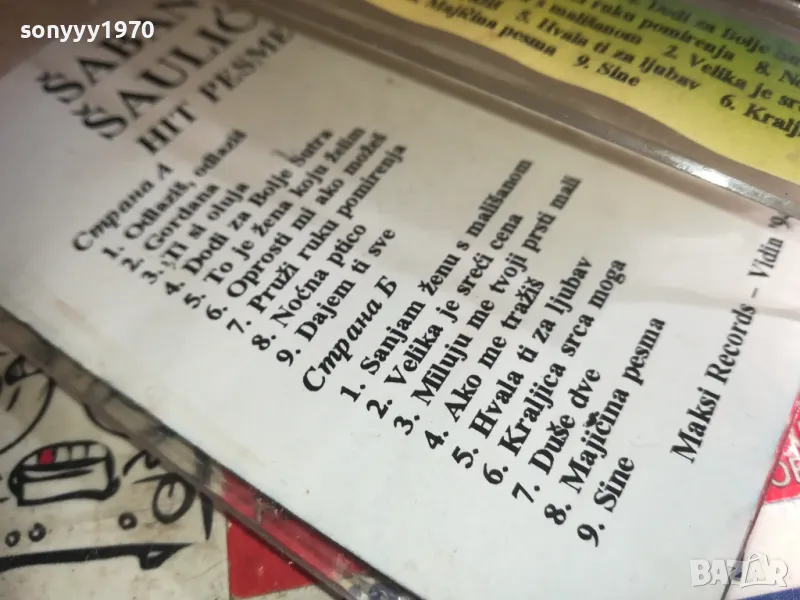 sonyyy1970
ŠABAN
ŠAULIĆ
HIT PESME
Страна А
1. Odlaziš, odlaziš
2. Gordana
3. Ti si oluja
4. Dođi za Bolje Sutra
5. To je žena koju želim
6. Oprosti mi ako možeš
7. Pruži ruku pomirenja
8. Noćna ptico
9. Dajem ti sve
Страна Б
1. Sanjam ženu s mališanom
2. Velika je sreći cena
3. Miluju me tvoji prsti mali
4. Ako me tražiš
5. Hvala ti za ljubav
6. Kraljica srca moga
7. Duše dve
8. Majičina pesma
9. Sine
Maksi Records – Vidin '94
za Bolje
ruku pomirenja
s mališanom
2. Velika je
5. Hvala ti za ljubav
6. Kralji
Majičina pesma
9. Sine
BAZAR